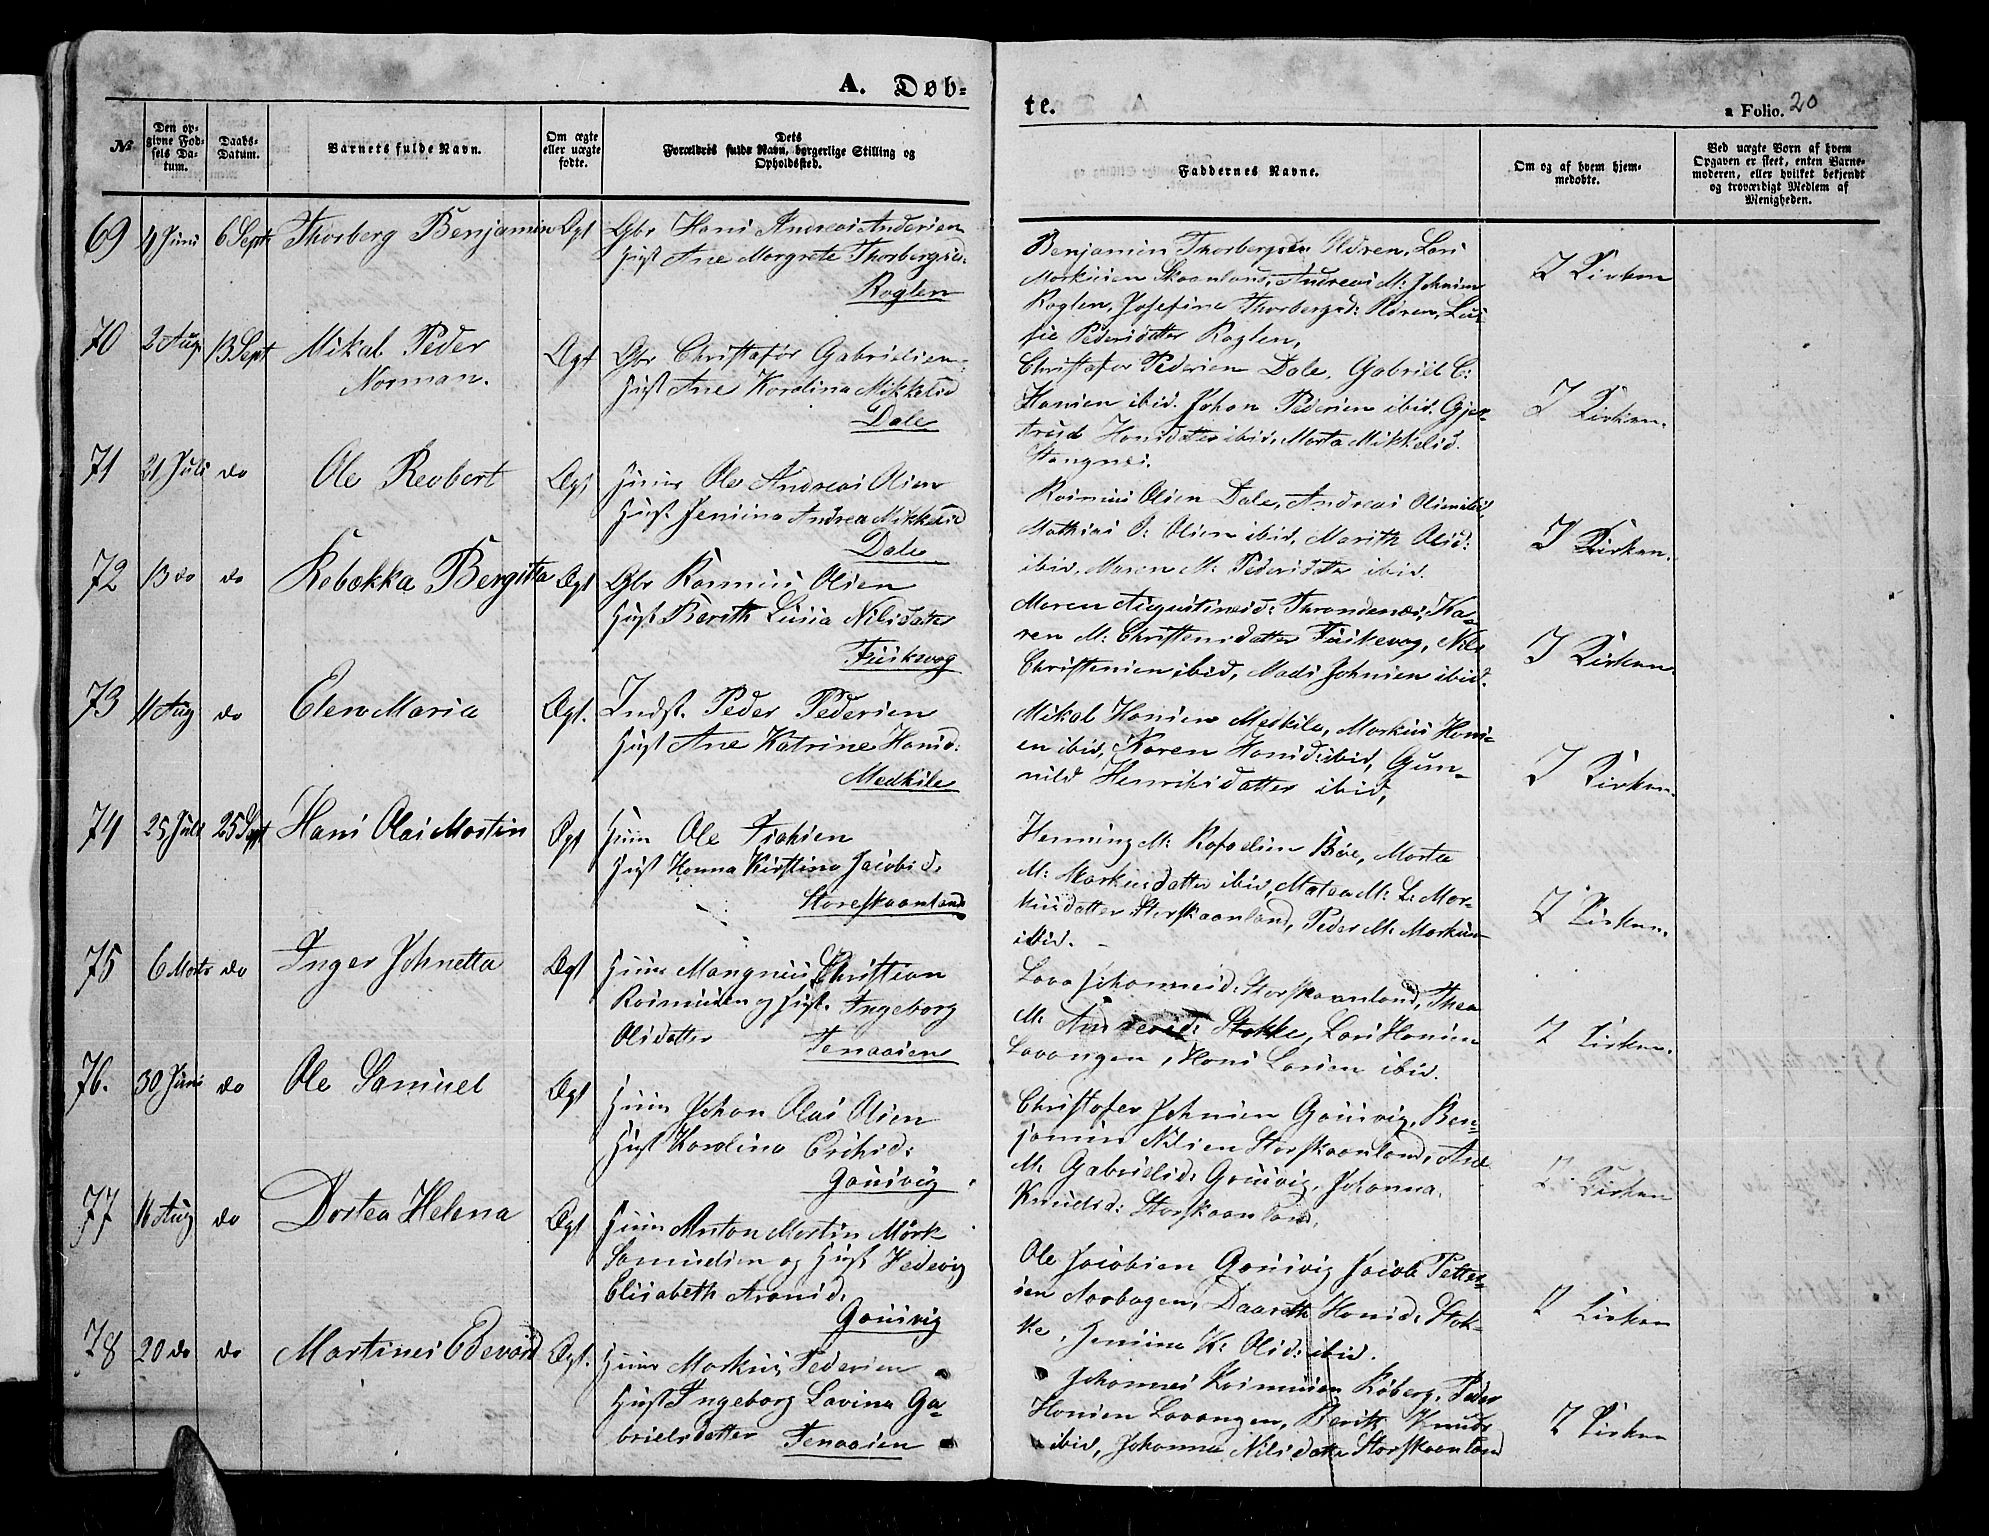 A. Døb-
te.
a Folio. 20
No
Den op-
givne Fød-
sels Da-
tum.
Daabs-
Datum.
Barnets fulde Navn.
Om ægte
eller uægte
fødte.
Dets
Forældres fulde Navn, borgerlige Stilling og
Opholdssted.
Faddernes Navne.
Om og af hvem hjem-
medøbte.
Ved uægte Børn af hvem
Opgaven er skeet, enten Barne-
moderen, eller hvilket bekjendt
og troværdigt Medlem af
Menigheden.
69 4 Juni 6 Sept Thorberg Benjamin Ægt Gbr Hans Andreas Andersen
Hust Ane Margrete Thorbergsd:
Roglen
Benjamin Thorbergsen Løren, Lars
Markusen Skaanland, Andreas M. Johnsen
Roglen, Josefine Thorbergsd: Løren, Lui-
sie Pedersdatter Roglen,
I Kirken
70 2 Aug 13 Sept Mikal Peder
Norman.
Ægt Gbr Christofør Gabrielsen
Hust Ane Karolina Mikkelsd
Dale
Christofer Pedersen Dale, Gabriel C:
Hansen ibid. Johan Pedersen ibid. Gjer-
trud Hansdatter ibid, Marta Mikkelsd.
Stangnes.
I Kirken.
71 21 Juli do Ole Reobert Ægt Huusm Ole Andreas Olsen
Hust. Jensina Andrea Mikkelsd
Dale
Rasmus Olsen Dale, Andreas Olsen ibid,
Mathias O: Olsen ibid, Marith Olsd:
ibid, Maren M: Pedersdatter ibid.
I Kirken.
72 13 do do Rebækka Bergitta Ægt Gbr Rasmus Olsen
Hust Berith Lusia Nilsdatter
Fuskevog
Maren Augustinusd: Throndenæs, Ka-
ren M: Christensdatter Fuskevog, Nils
Christensen ibid, Mads Johnsen ibid.
I Kirken.
73 11 Aug do Elen Maria Ægt. Indst. Peder Pedersen
Hust Ane Katrine Hansd:
Medkile
Mikal Hansen Medkile, Markus Hans-
en ibid, Karen Hansd: ibid, Gun-
nild Henriksdatter ibid,
I Kirken.
74 25 Juli 25 Sept Hans Olai Martin Ægt Huusm Ole Isaksen
Hust Hanna Kirstina Jacobsd.
Storeskaanland
Henning M: Rafaelsen Böe, Marta
M: Markusdatter ibid, Matea M: L: Mar-
kusdatter Storskaanland, Peder M: Markusen
ibid.
I Kirken.
75 6 Marts do Inger Johnetta Ægt Huusm Mangnus Christian
Rasmusen og Hust. Ingeborg
Olsdatter Tenaasen
Lava Johannesd: Storskaanland, Thea
M: Andresd: Stokke, Lars Hansen
Lavangen, Hans Larsen ibid.
I Kirken.
76. 30 Juni do Ole Samuel Ægt Huusm Johan Olai Olsen
Hust Karolina Eriksd:
Gausvig
Christofer Johnsen Gausvig, Ben-
jamin Nilsen Storskaanland, Ane
M: Gabrielsd: Gausvig, Johanna
Knudsd: Storskaanland,
I Kirken
77 16 Aug do Dortea Helena Ægt Huusm Anton Martin Mörk
Samuelsen og Hust Hedevig
Elisabeth Aronsd.
Gausvig
Ole Jacobsen Gausvig Jacob Petter-
sen Aarbogen, Daareth Hansd. Stok-
ke, Jensina K: Olsd: ibid.
I Kirken
78 20 do do Martines Edevard Ægt. Huusm Markus Pedersen
Hust Ingeborg Lavina Ga-
brielsdatter Tenaasen
Johannes Rasmusen Røberg, Peder
Hansen Lavangen, Berith Knuds
ibid, Johanna Nilsdatter Storskaanland
I Kirken